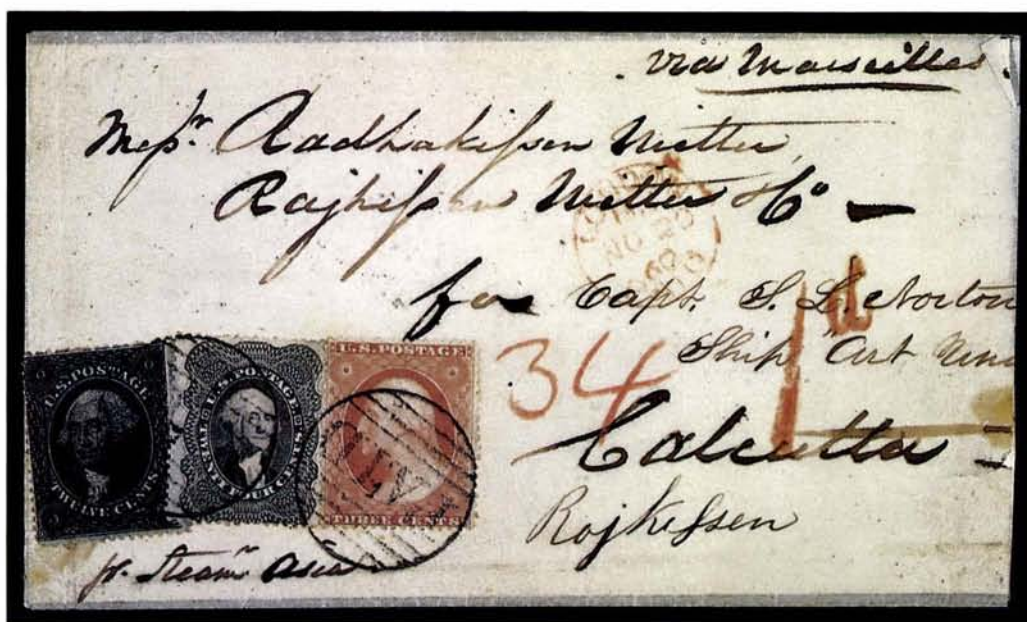 via Marseilles.
Messrs. Radhakissen Mitter,
Rajkissen Mitter & Co
for Capt. S. L. Norton
Ship "Art
Calcutta
Rajkissen
34
1d
U.S. POSTAGE
TWELVE CENTS
U.S. POSTAGE
TWENTY FOUR CENTS
U.S. POSTAGE
THREE CENTS
PAID
NO 26
60
pr. Steamr Asia